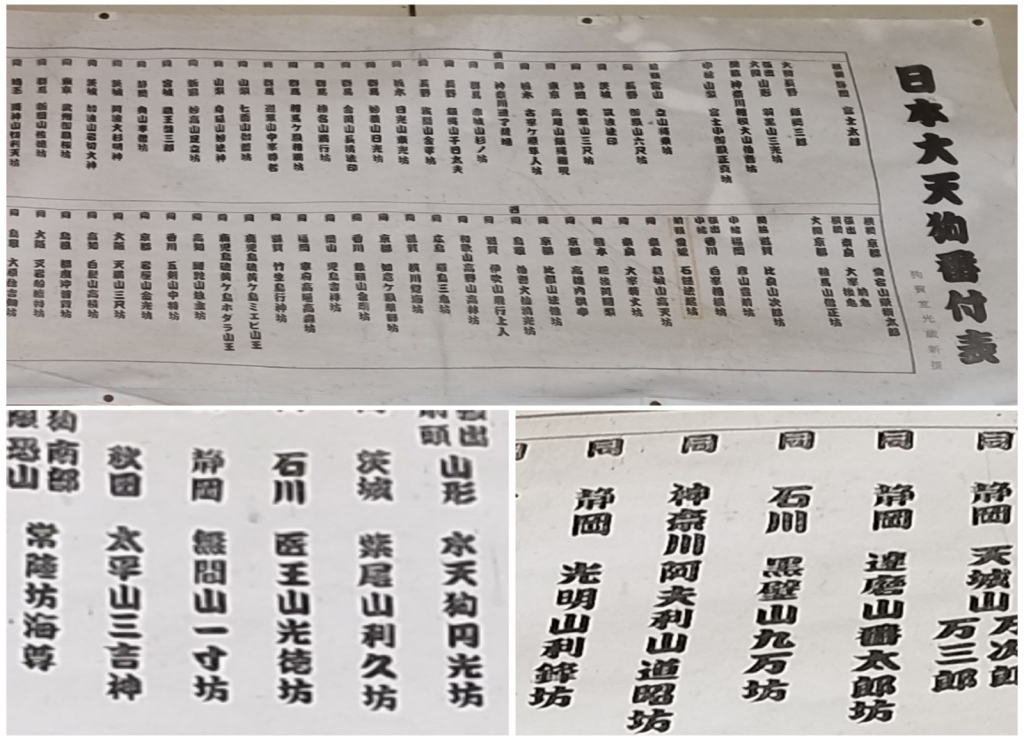 日本大天狗番付表
横綱 静岡 富士太郎
大関 長野 飯綱三郎
張出大関 山形 羽黒山三光坊
関脇 神奈川 相模大山伯耆坊
小結 山梨 富士小御嶽正真坊
前頭 富山 立山縄乗坊
同 長野 御嶽山六尺坊
同 茨城 筑波法印
同 静岡 秋葉山三尺坊
同 東京 高尾山飯縄権現
同 栃木 古峯ヶ原隼人坊
東 神奈川 道了薩埵
同 群馬 赤城山杉ノ坊
同 長野 飯縄山千日太夫
同 長野 浅間山金平坊
同 栃木 日光山東光坊
同 群馬 妙義山日光坊
同 群馬 金洞山長清法印
同 群馬 榛名山満行坊
同 群馬 相馬ヶ嶽
同 群馬 迦葉山中峯尊者
同 山梨 七面山
同 山梨 身延山妙法神
同 新潟 妙高山足立坊
同 宮城 蔵王
同 静岡 奥山半僧坊
同 茨城 阿波大杉明神
同 茨城 加波山岩切大神
同 東京 武州御嶽桜坊
同 群馬
同 埼玉
横綱 京都 愛宕山栄術太郎
張出横綱 奈良 大峯前鬼 後鬼
大関 京都 鞍馬山僧正坊
関脇 滋賀 比良山次郎坊
小結 福岡 彦山豊前坊
張出小結 香川 白峯相模坊
前頭 愛媛 石鎚法起坊
同 奈良 葛城山高天坊
同 奈良 大峯菊丈坊
同 熊本 肥後阿闍梨
同 京都 高雄内供奉
同 京都 比叡山法性坊
同 鳥取 伯耆大仙清光坊
西 滋賀 伊吹山飛行上人
同 和歌山 高野山高林坊
同 広島 厳島三鬼坊
同 滋賀 横川覚海坊
同 京都 如意ヶ嶽薬師坊
同 香川 象頭山金剛坊
同 岡山 児島
同 福岡 宰府高垣高森坊
同 滋賀 竹生島行神坊
同 鹿児島 硫黄ヶ島ミエビ山王
同 鹿児島 硫黄ヶ島ホタラ山王
同 高知
同 香川 五剣山中将坊
同 京都
同 大阪 天満山三尺坊
同 高知 白髪山高積坊
同 島根 都度沖普賢坊
同 大阪 天岩船
同 鳥取
山形 水天狗円光坊
茨城 紫尾山利久坊
石川 医王山光徳坊
静岡 無間山一寸坊
秋田 太平山三吉神
常陸坊海尊
南部
恐山
同 静岡 天城山 万次郎 万三郎
同 静岡 達磨山番太郎坊
同 石川 黒壁山九万坊
同 神奈川 阿夫利山道昭坊
同 静岡 光明山利鋒坊